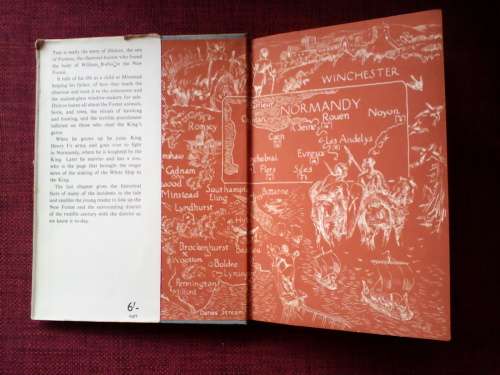 This is really the story of
of Purkess, the charcoal-burner who found
the body of William Rufus in the New
Forest.
It tells of his life as a child at Minstead
helping his father, of how they made the
charcoal and took it to the
the stained-glass window-makers for sale.
us all about the Forest animals,
birds, and trees, the rituals of hawking
and hunting, and the terrible punishments
inflicted on those who stole the King's
game.
When he grows up he joins King
Henry I's army, and goes over to fight
in Normandy, where he is knighted by the
King. Later he marries and has a son,
who is the page that brought the tragic
news of the sinking of the White Ship to
the King.
The last chapter gives the historical
facts of many of the incidents in the tale
and enables the young reader to link up the
New Forest and the surrounding district
of the twelfth century with the district as
we know it to-day.
6/-
net
Romsey
Cadnam
Minstead
Lyndhurst
Southampton
Eling
Brockenhurst
Boldre
Pennington
Milford
Danes Stream
WINCHESTER
NORMANDY
Rouen
Seine
Noyon
Caen
Les Andelys
Evreux
Flers